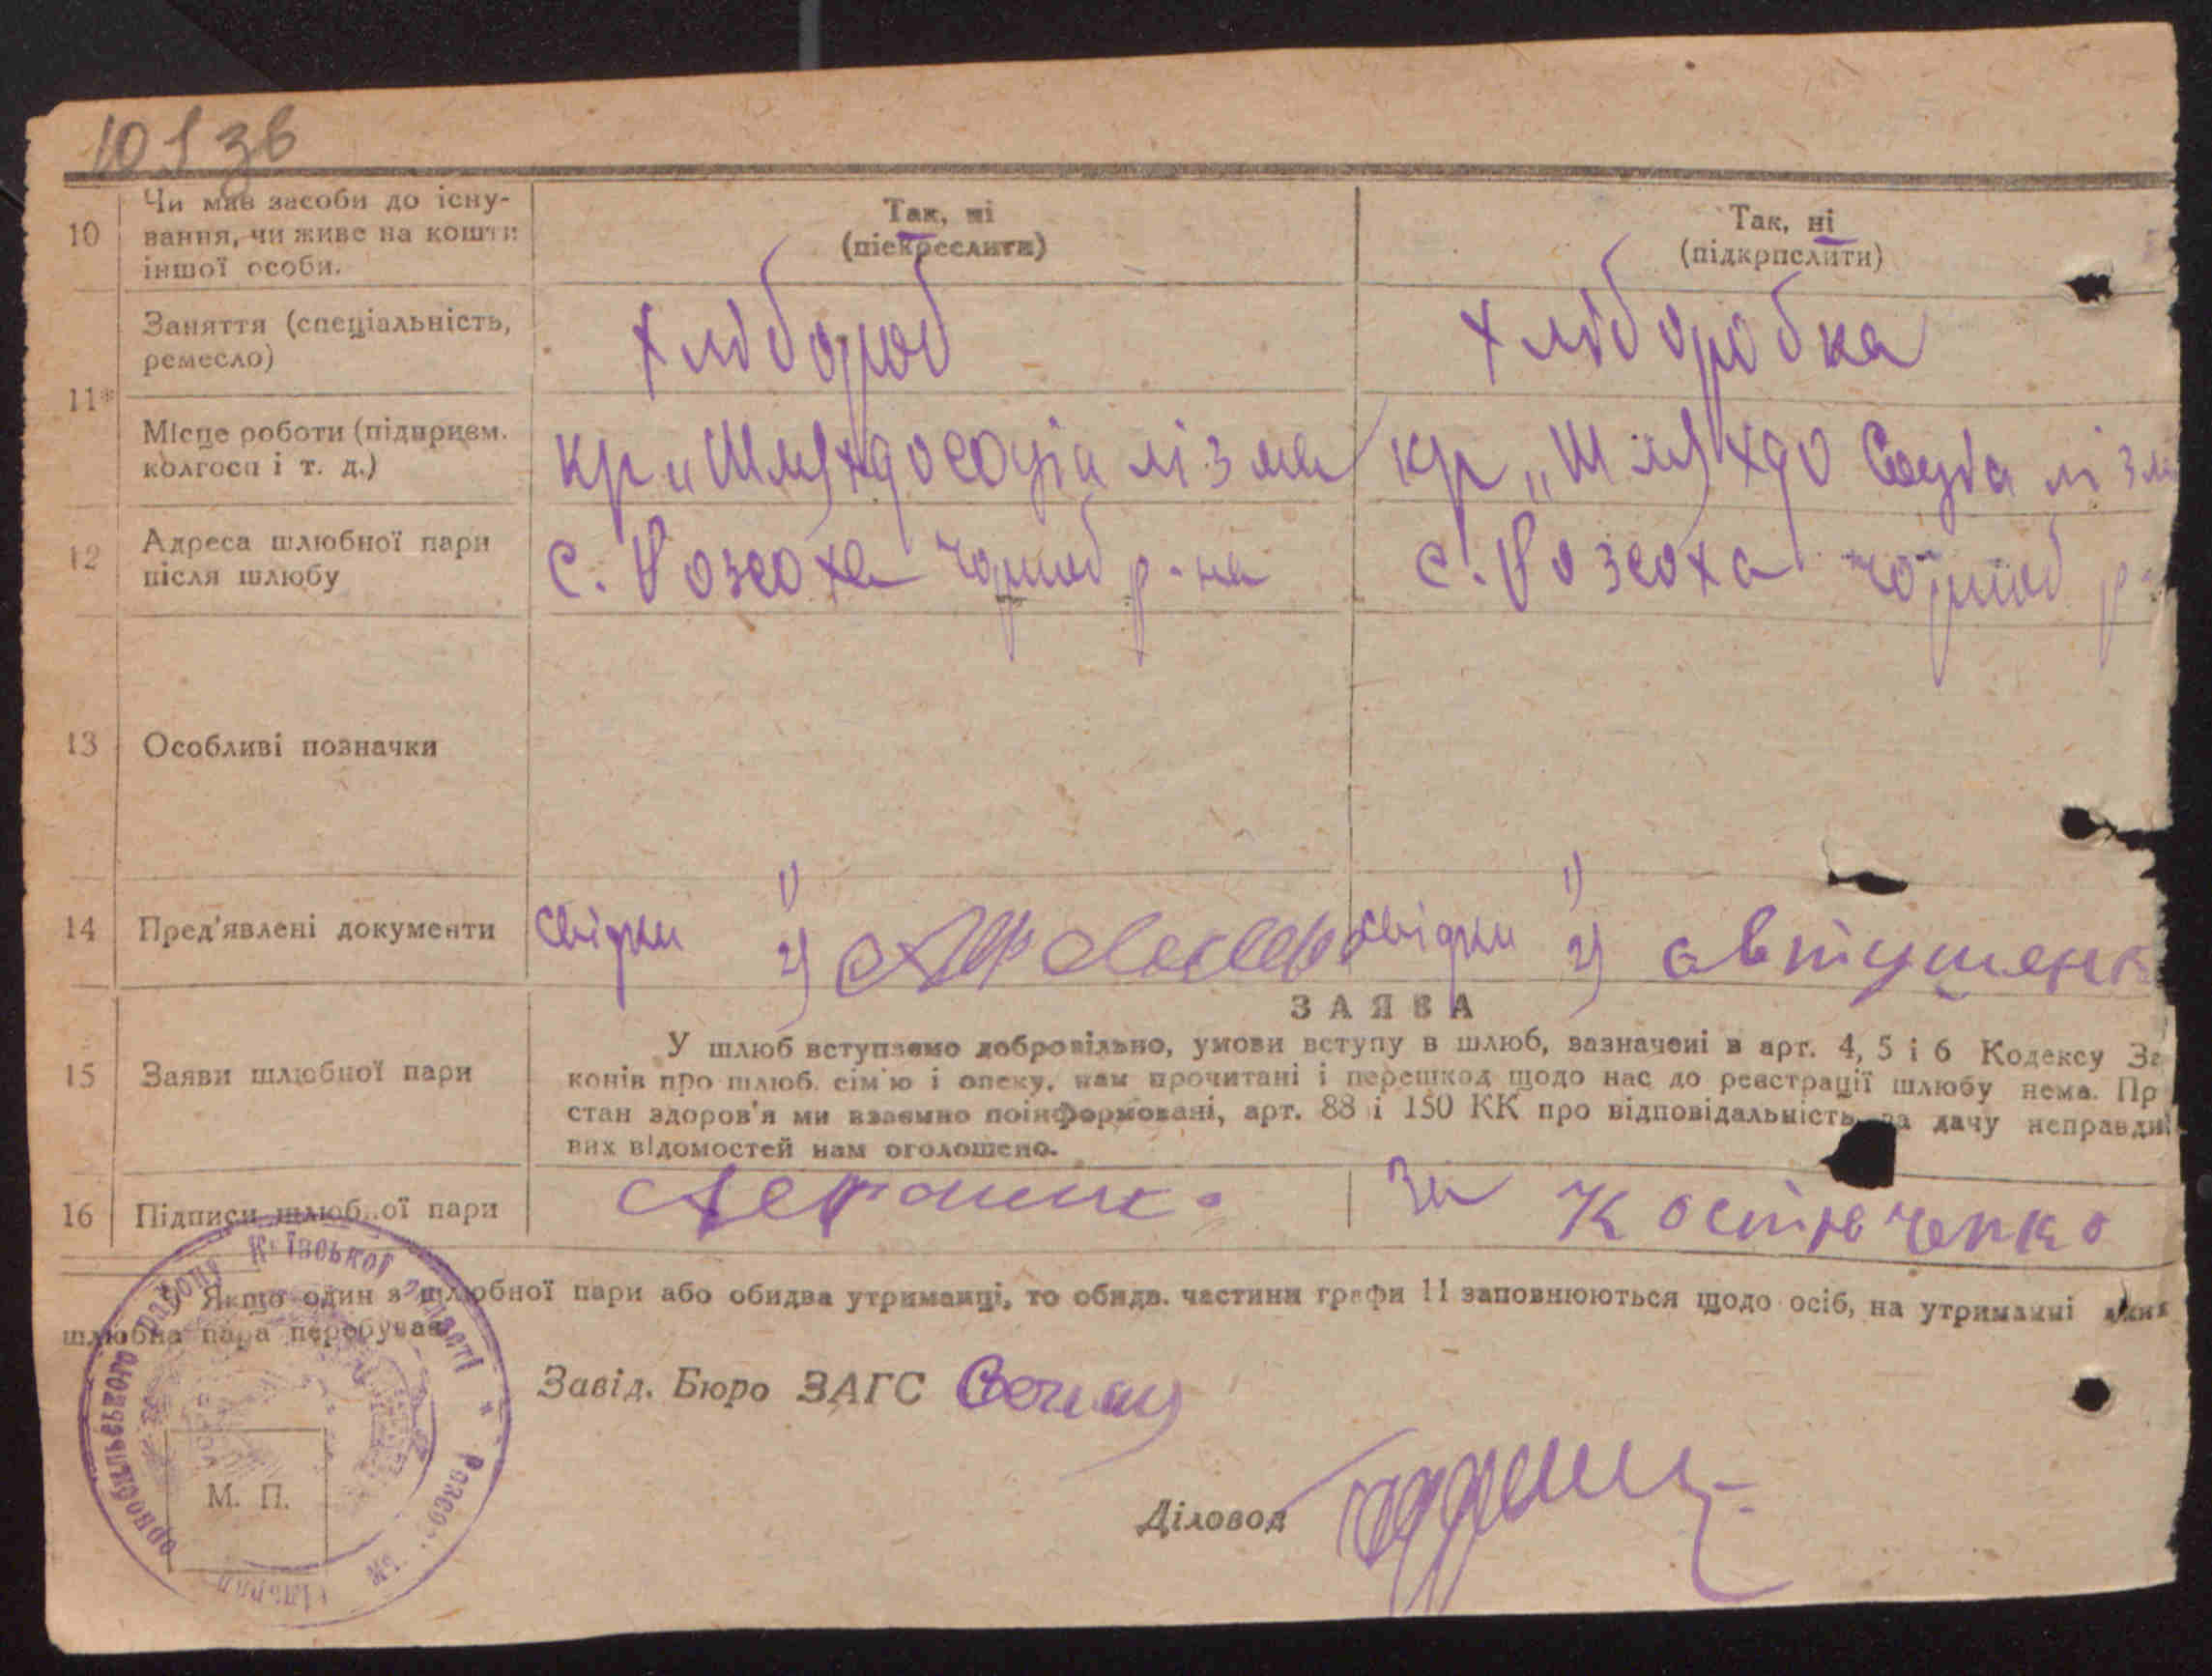 10
Чи має засоби до існу-
вання, чи живе на кошти
іншої особи.
Так, ні
(підкреслити)
Так, ні
(підкрпслити)
11*
Заняття (спеціальність,
ремесло)
Хлібороб
Хліборобка
Місце роботи (підприєм.
колгосп і т. д.)
кр „Шлях до соціалізма
кр „Шлях до Соціалізм
12
Адреса шлюбної пари
після шлюбу
с. Розсоха Чорноб р-на
с. Розсоха Чорноб р-
13
Особливі позначки
14
Пред'явлені документи
Свідки 1)
2)
свідки 1)
2) Автушенк
15
Заяви шлюбної пари
ЗАЯВА
У шлюб вступаємо добровільно, умови вступу в шлюб, зазначені в арт. 4, 5 і 6 Кодексу За
конів про шлюб. сім'ю і опеку, нам прочитані і перешкод щодо нас до реєстрації шлюбу нема. Пр
стан здоров'я ми взаємно поінформовані, арт. 88 і 150 КК про відповідальність за дачу неправди
вих відомостей нам оголошено.
16
Підписи шлюбної пари
За Костюченко
*) Якщо один з шлюбної пари або обидва утриманці, то обидв. частини графи 11 заповнюються щодо осіб, на утриманні яких
шлюбна пара перебуває
Завід. Бюро ЗАГС
Діловод
М. П.
орнобильського району Київської області * Розсо